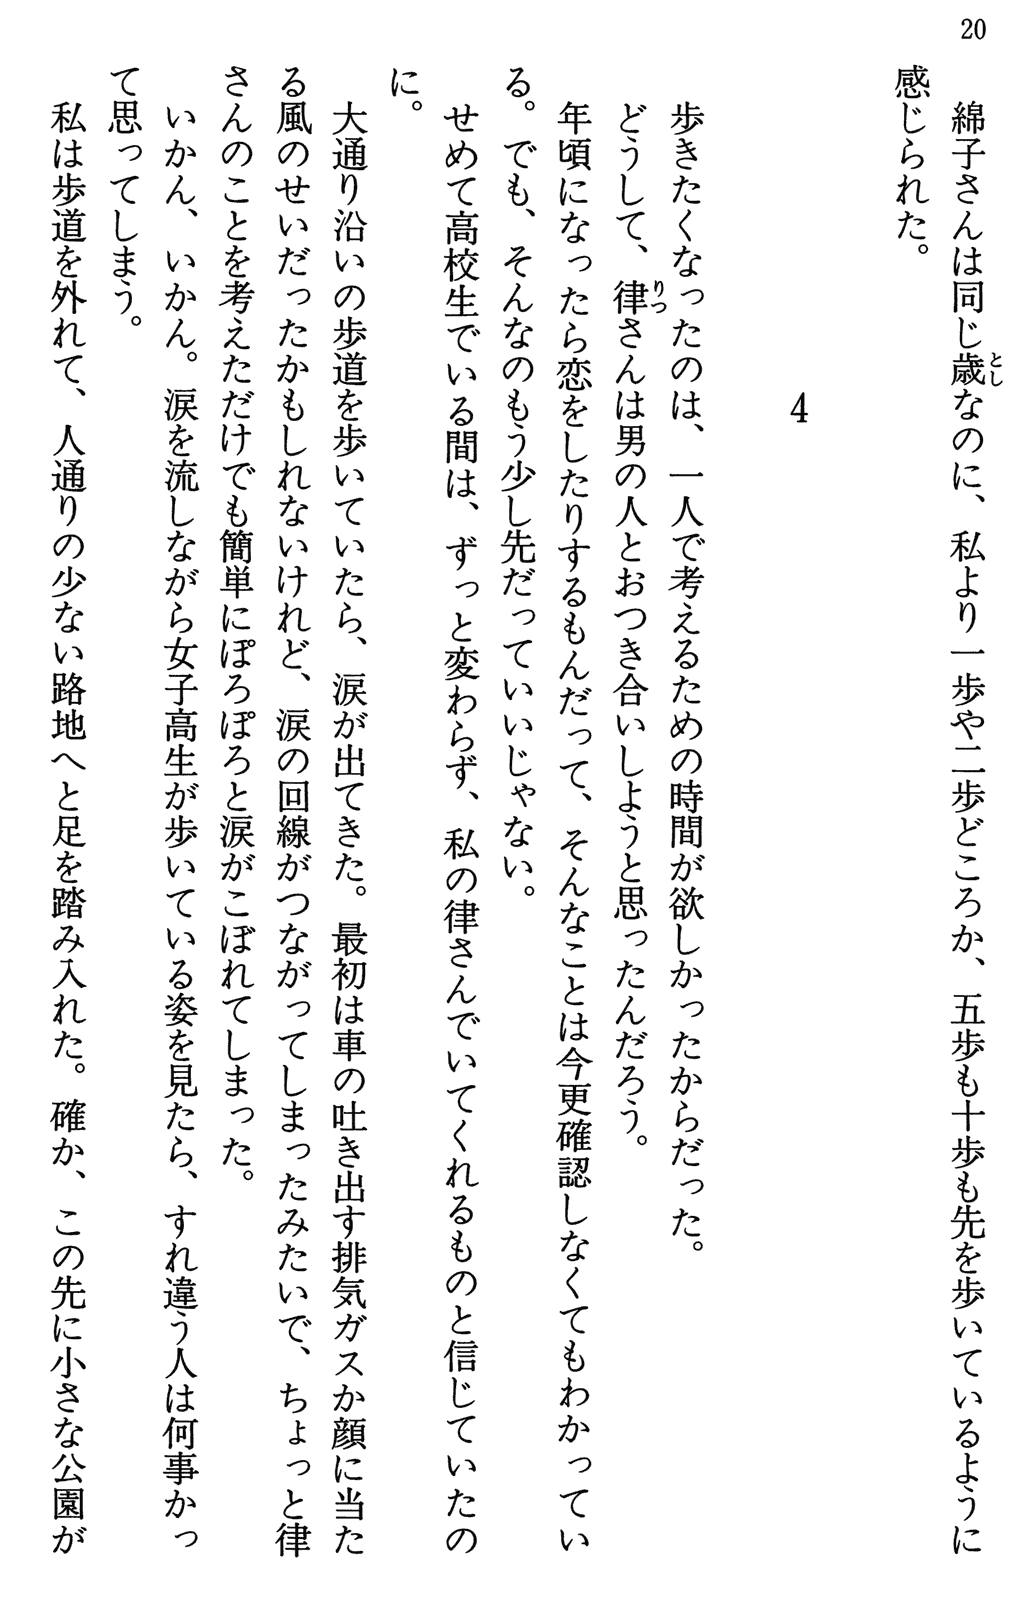 20
綿子さんは同じ歳なのに、私より一歩や二歩どころか、五歩も十歩も先を歩いているように
とし
感じられた。
4
歩きたくなったのは、一人で考えるための時間が欲しかったからだった。
どうして、律さんは男の人とおつき合いしようと思ったんだろう。
りつ
年頃になったら恋をしたりするもんだって、そんなことは今更確認しなくてもわかってい
る。でも、そんなのもう少し先だっていいじゃない。
せめて高校生でいる間は、ずっと変わらず、私の律さんでいてくれるものと信じていたの
に。
大通り沿いの歩道を歩いていたら、涙が出てきた。最初は車の吐き出す排気ガスか顔に当た
る風のせいだったかもしれないけれど、涙の回線がつながってしまったみたいで、ちょっと律
さんのことを考えただけでも簡単にぽろぽろと涙がこぼれてしまった。
いかん、いかん。涙を流しながら女子高生が歩いている姿を見たら、すれ違う人は何事かっ
て思ってしまう。
私は歩道を外れて、人通りの少ない路地へと足を踏み入れた。確か、この先に小さな公園が